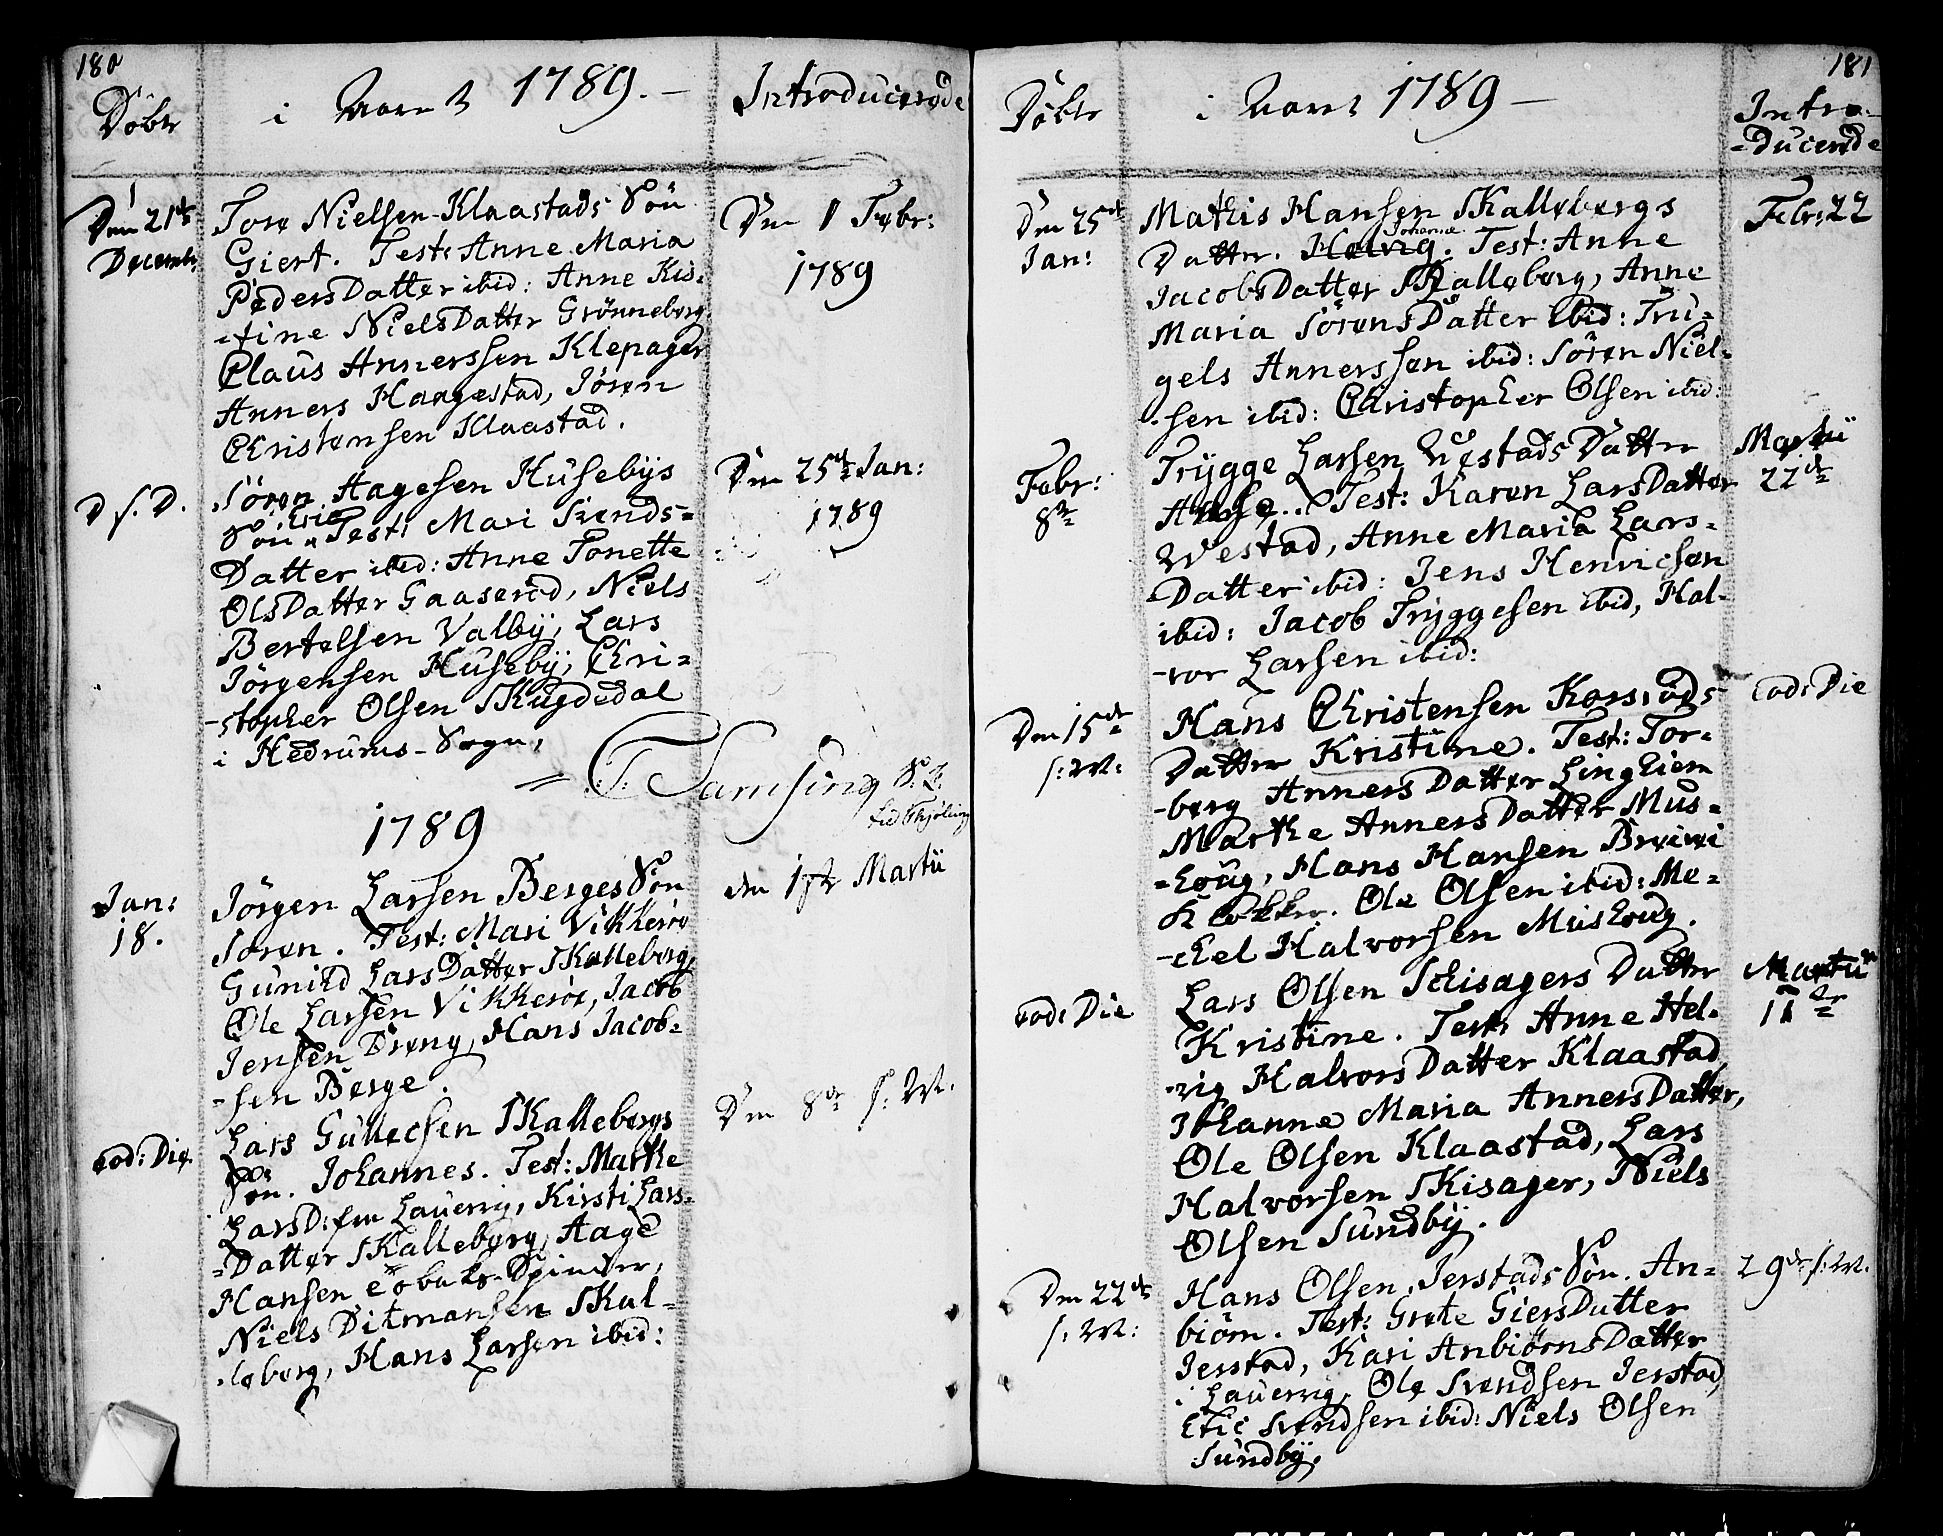 180
Döbte
i Aaret 1789. —
Introducerede
Den 21de
Decemb:
Tore Nielsen Klaastads Sön
Giert. Test: Anne Maria
PedersDatter ibid: Anne Kis-
-tine NielsDatter Grönneberg
Claus Annerssen Klepager
Anners Haagestad, Sören
Christensen Klaastad.
Den 1 Febr:
1789
D. s. D.
Sören Hagesen Husebÿs
Sön Eric Test: Mari Svends-
Datter ibid: Anne Tonette
OlsDatter Gaaseröd, Niels
Bertelsen Valbÿ, Lars
Jörgensen Husebÿ, Chri-
-stopher Olsen Skugdedal
i Hedrums-Sogn,
Den 25de Jan:
1789
T. Tamsing S. P.
til Thjöling
1789
Jan:
18.
Jörgen Larsen Berges Sön
Soren. Test: Mari Vikkeröe
Gunild LarsDatter Skalleberg,
Ole Larsen Vikkeröe, Jacob
Jensen Dreng, Hans Jacob-
-sen Berge.
den 1ste Martii
eod: Die.
Lars Gullecsen Skallebergs
Sön. Johannes. Test: Marthe
LarsD: fra Lauervig, Kirsti Lars-
-Datter Skalleberg, Aage
Hansen Tobaks-Spinder,
Niels Ditmansen Skal-
-leberg, Hans Larsen ibid:
Den 8de s: M.
181
Döbte
i Aaret 1789 —
Intro-
-ducerede
Den 25de
Jan:
Mathis Hansen Skallebergs
Johanne
Datter. Helvig. Test: Anne
JacobsDatter Skalleberg, Anne
Maria SörensDatter ibid: Tru-
gels Annerssen ibid: Sören Niel-
-sen ibid: Christopher Olsen ibid:
Febr: 22
Febr:
8de
Trÿgge Larsen Vestads Datter
Anne.. Test: Karen LarsDatter
Westad, Anne Maria Lars-
-Datter ibid: Jens Henricsen
ibid: Jacob Trÿggesen ibid, Hal-
-vor Larsen ibid:
Martii
22de
Den 15de
s: M:
Hans Christensen Kaasröds
Datter Kristine. Test: Tor-
-berg AnnersDatter Linghiem
Marthe AnnersDatter Mus-
-houg, Hans Hansen Breivi
Klokker. Ole Olsen ibid: Me-
-chel Halvorsen Mushoug.
eod: Die
eod: Die
Lars Olsen Schisagers Datter
Kristine. Test: Anne Hel-
-vig HalvorsDatter Klaastad
Johanne Maria AnnersDatter,
Ole Olsen Klaastad, Lars
Halvorsen Skisager, Niels
Olsen Sundbÿ.
Martii
11de
Den 22de
s: M:
Hans Olsen Jerstads Sön. An-
biörn. Test: Grete GiersDatter
Jerstad, Kari AnbiörnsDatter
i Lauervig, Ole Svendsen Jerstad,
Eric Svendsen ibid: Niels Olsen
Sundbÿ.
29de s: M.